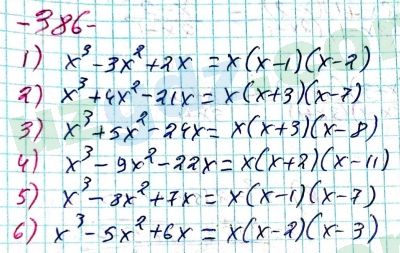 -386-
1) x³ - 3x² + 2x = x(x-1)(x-2)
2) x³ + 4x² - 21x = x(x+3)(x-7)
3) x³ + 5x² - 24x = x(x+3)(x-8)
4) x³ - 9x² - 22x = x(x+2)(x-11)
5) x³ - 8x² + 7x = x(x-1)(x-7)
6) x³ - 5x² + 6x = x(x-2)(x-3)